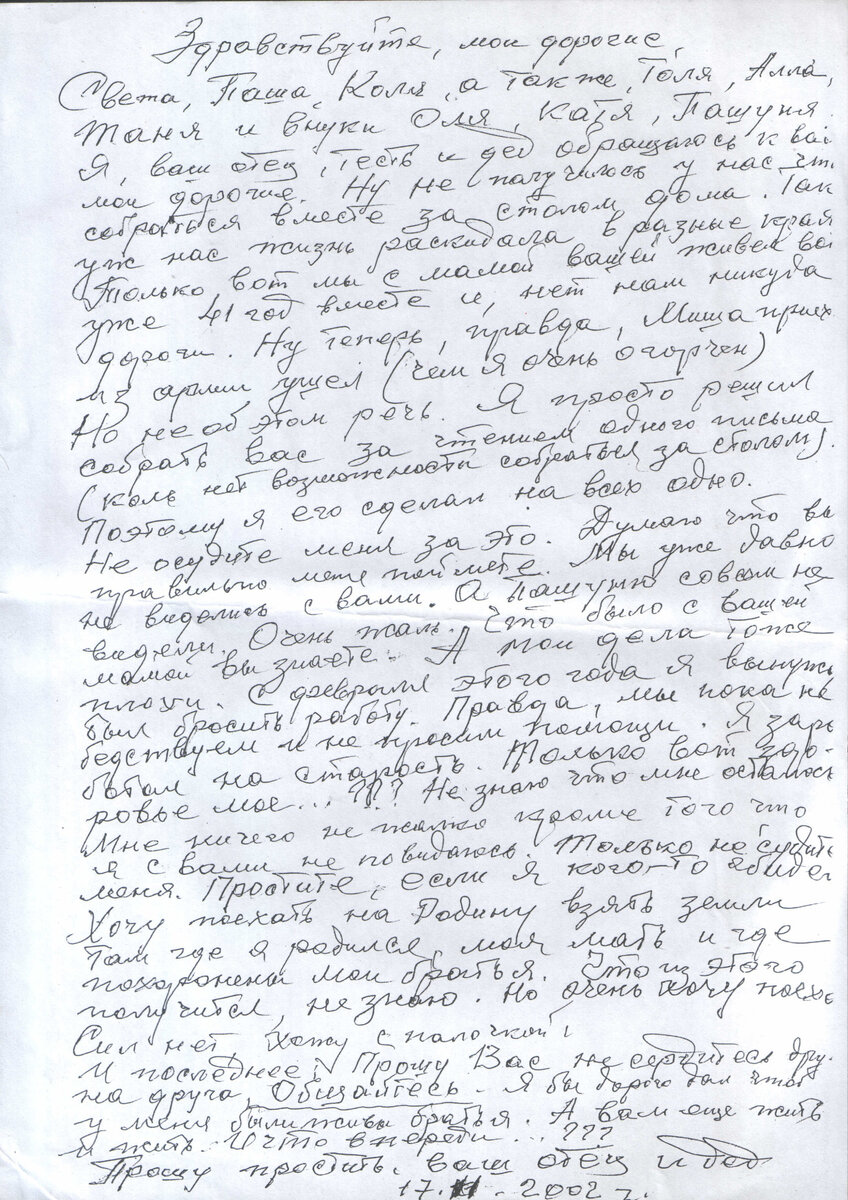 Здравствуйте, мои дорогие,
Света, Паша, Коля, а также, Толя, Алла,
Таня и внуки Оля, Катя, Пашуня.
Я, ваш отец, тесть и дед обращаюсь к вам
мои дорогие. Ну не получилось у нас, что
собраться вместе за столом дома. Так
уж нас жизнь раскидала в разные края
Только вот мы с мамой вашей живем во
уже 41 год вместе и, нет нам никуда
дороги. Ну теперь, правда, Миша приех
из армии ушел (чем я очень огорчен)
Но не об этом речь. Я просто решил
собрать вас за чтением одного письма
(коль нет возможности собраться за столом).
Поэтому я его сделал на всех одно.
Не осудите меня за это. Думаю что вы
правильно меня поймете. Мы уже давно
не виделись с вами. А Пашуню совсем не
видели. Очень жаль. Что было с вашей
мамой вы знаете. А мои дела тоже
плохи. С февраля этого года я вынуж
был бросить работу. Правда, мы пока не
бедствуем и не просим помощи. Я зара
ботал на старость. Только вот здо-
ровье мое... ??? Не знаю что мне осталось
Мне ничего не жалко кроме того что
я с вами не повидаюсь. Только не судите
меня. Простите, если я кого-то обидел
Хочу поехать на Родину взять земли
там где я родился, моя мать и где
похоронены мои братья. Что из этого
получится, не знаю. Но очень хочу поеха
Сил нет, хожу с палочкой!
И последнее! Прошу Вас не сердитесь дру-
на друга, Общайтесь. Я бы дорого дал чтоб
у меня были живы братья. А вам еще жить
и жить. И что впереди... ???
Прошу простить. ваш отец и дед
17.11.2002 г.